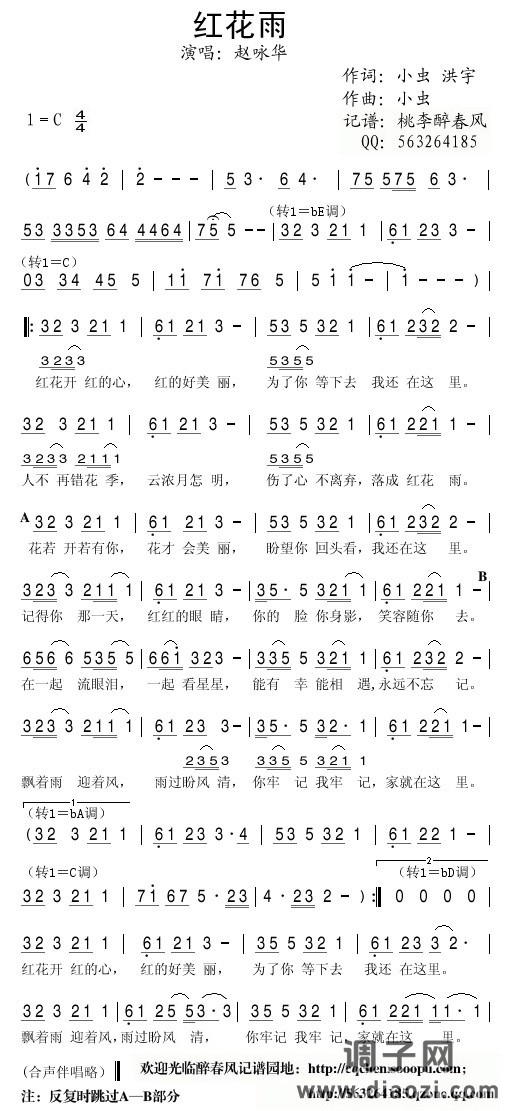 红花雨
演唱：赵咏华
作词：小虫 洪宇
作曲：小虫
1=C 4/4
记谱：桃李醉春风
QQ：563264185
(1 7 6 4 2 | 2 - - - | 5 3· 6 4· | 7 5 5 7 5 6 3· |
(转1=bE调)
5 3 3 3 5 3 6 4 4 4 6 4 | 7 5 5 - - | 3 2 3 2 1 1 | 6 1 2 3 3 - |
(转1=C)
0 3 3 4 4 5 5 | 1 1 7 1 7 6 5 | 5 5 1 1 - - | 1 - - - )
‖: 3 2 3 2 1 1 | 6 1 2 1 3 - | 5 3 5 3 2 1 | 6 1 2 3 2 2 - |
3 2 3 3 5 3 5 5
红花开 红的心， 红的好美 丽， 为了你 等下去 我还 在这 里。
3 2 3 2 1 1 | 6 1 2 1 3 - | 5 3 5 3 2 1 | 6 1 2 2 1 1 - |
3 2 3 3 2 1 1 1 5 3 5 5
人不 再错花 季， 云浓月怎 明， 伤了心 不离弃，落成 红花 雨。
A 3 2 3 2 1 1 | 6 1 2 1 3 - | 5 3 5 3 2 1 | 6 1 2 3 2 2 - |
花若 开若有你， 花才 会美 丽， 盼望你 回头看，我还在这 里。
B
3 2 3 3 2 1 1 1 | 6 1 2 1 3 - | 3 5· 5 3 2 1 | 6 1 2 2 1 1 - |
记得你 那一天， 红红的眼 睛， 你的 脸 你身影，笑容随你 去。
6 5 6 6 5 3 5 5 | 6 6 1 3 2 3 - | 3 3 5 5 3 2 1 | 6 1 2 3 2 2 - |
在一起 流眼泪， 一起 看星星， 能有 幸 能相 遇,永远不忘 记。
3 2 3 3 2 1 1 1 | 6 1 2 1 3 - | 5 3 5 3 2 1 | 6 1 2 2 1 1 - |
2 3 5 3 3 5 3 5
飘着雨 迎着风， 雨过盼风 清，你牢 记 我牢 记，家就在这 里。
1
(转1=bA调)
(3 2 3 2 1 1 | 6 1 2 3 3·4 | 5 3 5 3 2 1 | 6 1 2 2 - |
2
(转1=C调) (转1=bD调)
3 2 3 2 1 1 | 7 1 6 7 5·2 3 | 4·2 3 4 - ):‖ 0 0 0 0 |
3 2 3 2 1 1 | 6 1 2 1 3 - | 3 5· 5 3 2 1 | 6 1 2 3 3 2· |
红花开 红的心， 红的好美 丽， 为了你 等下去 我还 在这里。
3 2 3 2 1 1 | 6 1 2 5 5 3· | 3 5· 5 3 2 1 | 6 1 2 1 1 1· 1 - ‖
飘着雨 迎着风,雨过盼风 清， 你牢记 我牢 记，家就在这 里。
(合声伴唱略) ‖ 欢迎光临醉春风记谱园地：
注：反复时跳过A—B部分
调子网
www.diaozi.com